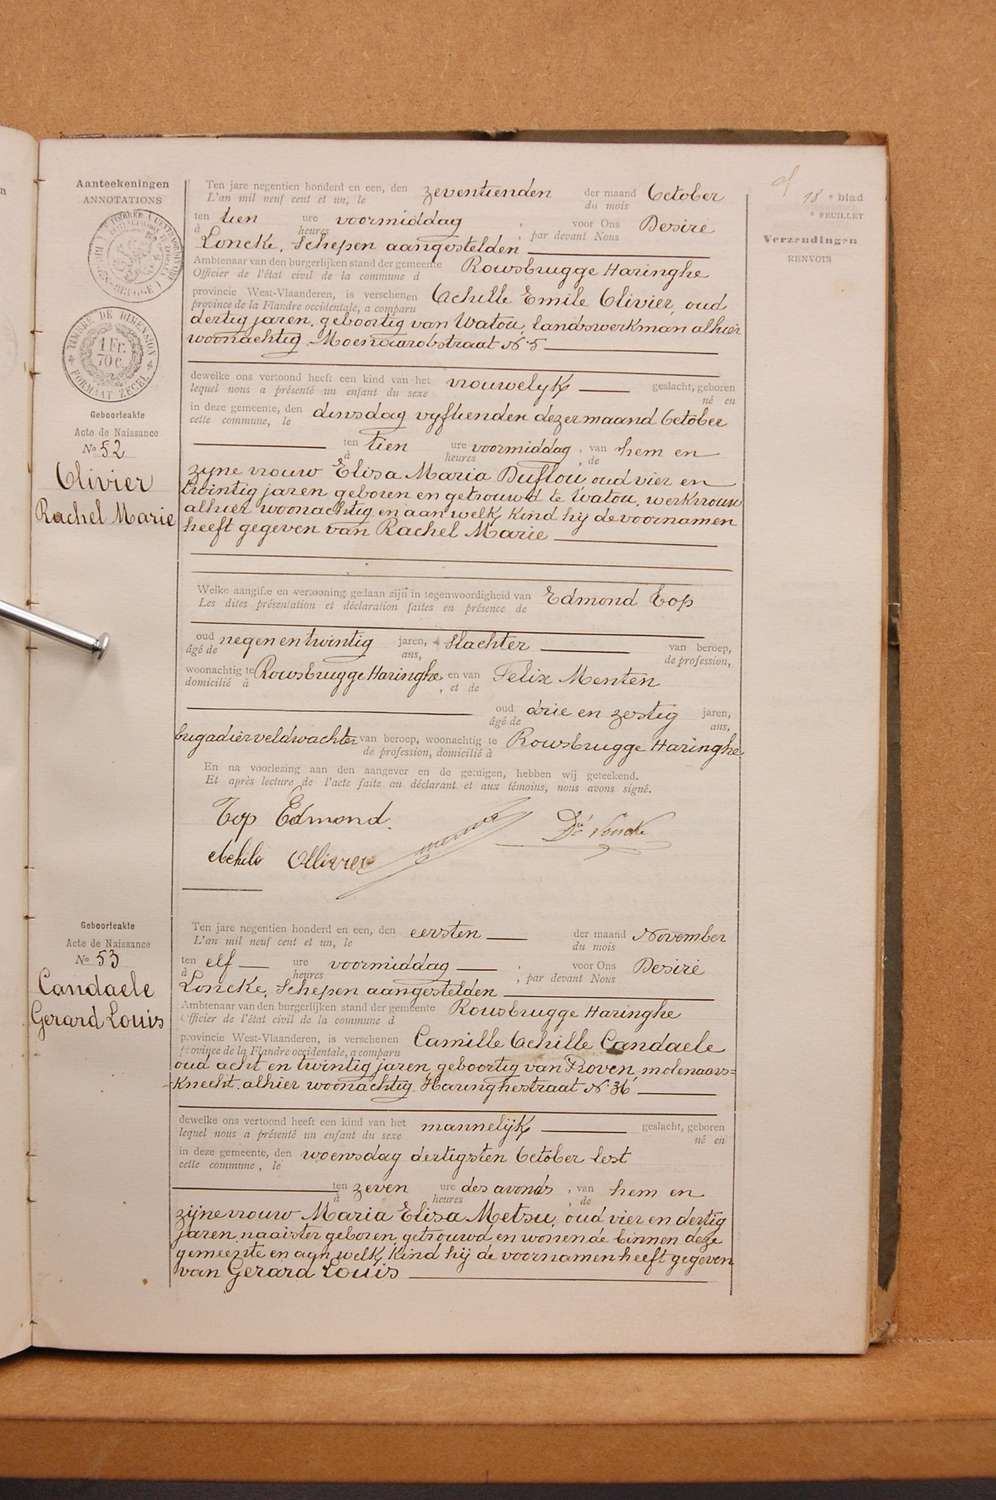 Aanteekeningen
ANNOTATIONS
18e blad
e FEUILLET
Verzendingen
RENVOIS
TIMBRE DE DIMENSION
1 FR.
70 c.
FORMAAT ZEGEL
Geboorteakte
Acte de Naissance
No 52
Olivier
Rachel Marie
Ten jare negentien honderd en een, den zeventienden der maand October
L'an mil neuf cent et un, le du mois
ten tien ure voormiddag , voor Ons Desiré
à heures , par devant Nous
Loncke, Schepen aangestelden
Ambtenaar van den burgerlijken stand der gemeente Rousbrugge Haringhe
Officier de l'état civil de la commune d
provincie West-Vlaanderen, is verschenen Achille Emile Olivier, oud
province de la Flandre occidentale, a comparu
dertig jaren, geboortig van Watou, landswerkman alhier
woonachtig, Moenaardestraat No 5
dewelke ons vertoond heeft een kind van het vrouwelijk geslacht, geboren
lequel nous a présenté un enfant du sexe né en
in deze gemeente, den dinsdag vyftienden dezer maand October
cette commune, le
ten tien ure voormiddag , van hem en
à heures , de
zijne vrouw Elisa Maria Duflou, oud vier en
twintig jaren geboren en getrouwd te Watou, werkvrouw
alhier woonachtig en aan welk kind hij de voornamen
heeft gegeven van Rachel Marie
Welke aangifte en vertooning gedaan zijn in tegenwoordigheid van Edmond Top
Les dites présentation et déclaration faites en présence de
oud negen en twintig jaren, slachter van beroep,
âgé de ans, de profession,
woonachtig te Rousbrugge Haringhe en van Felix Menten
domicilié à , et de
oud drie en zestig jaren,
âgé de ans,
brigadier veldwachter van beroep, woonachtig te Rousbrugge Haringhe
de profession, domicilié à
En na voorlezing aan den aangever en de getuigen, hebben wij geteekend.
Et après lecture de l'acte faite au déclarant et aux témoins, nous avons signé.
Top Edmond. Dé Loncke
Achile Ollivier
Geboorteakte
Acte de Naissance
No 53
Candaele
Gerard Louis
Ten jare negentien honderd en een, den eersten der maand November
L'an mil neuf cent et un, le du mois
ten elf ure voormiddag , voor Ons Desiré
à heures , par devant Nous
Loncke, Schepen aangestelden
Ambtenaar van den burgerlijken stand der gemeente Rousbrugge Haringhe
Officier de l'état civil de la commune d
provincie West-Vlaanderen, is verschenen Camille Achille Candaele
province de la Flandre occidentale, a comparu
oud acht en twintig jaren, geboortig van Proven, molenaars=
knecht, alhier woonachtig, Haringhestraat No 36
dewelke ons vertoond heeft een kind van het mannelijk geslacht, geboren
lequel nous a présenté un enfant du sexe né en
in deze gemeente, den woensdag dertigsten October lest
cette commune, le
ten zeven ure des avonds , van hem en
à heures , de
zijne vrouw Maria Elisa Metsu, oud vier en dertig
jaren, naaister geboren, getrouwd en wonende binnen deze
gemeente en aan welk kind hij de voornamen heeft gegeven
van Gerard Louis